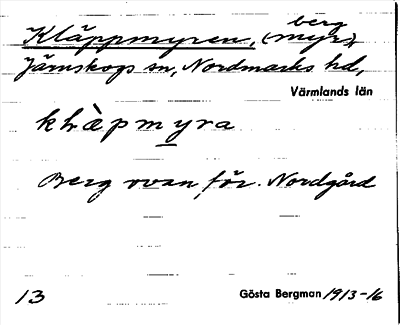 Kläppmyren, (myr), berg
Järnskogs sn, Nordmarks hd,
Värmlands län
klæ̀pmyra
Berg ovan för Nordgård
13 Gösta Bergman 1913-16